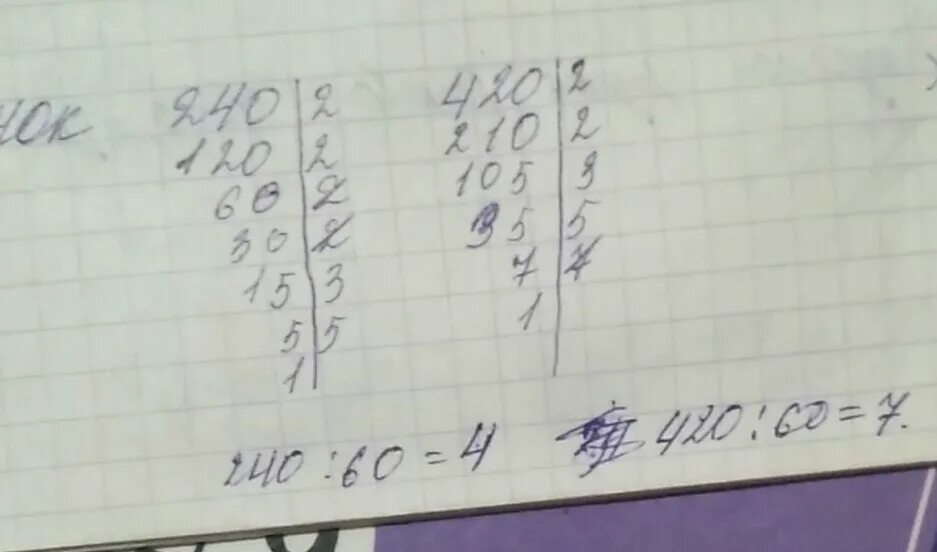 НОК
240 | 2
120 | 2
60 | 2
30 | 2
15 | 3
5 | 5
1
420 | 2
210 | 2
105 | 3
35 | 5
7 | 7
1
240 : 60 = 4
420 : 60 = 7.